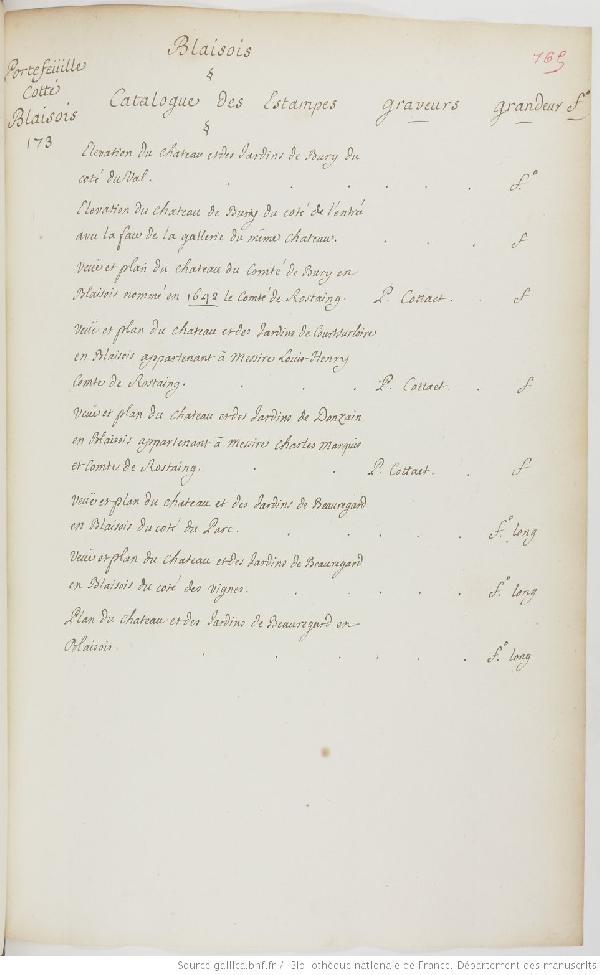 Blaisois
765
Portefeüille
Cotté
Blaisois
173
§
Catalogue des Estampes graveurs grandeur f.º
§
Elevation du Chateau et des Jardins de Bury du
coté du Val. . . . . . . f.º
Elevation du Chateau de Bury du coté de l'entré
avec la face de la gallerie du même Chateau. . . . f
Veüe et plan du chateau du Comté de Bury en
Blaisois nommé en 1642 le Comté de Rostaing. P. Cottaet. . f
Veüe et plan du Chateau et des Jardins de Courtsurloire
en Blaisois appartenant à Messire Louis-Henry
Comte de Rostaing. . . . P. Cottaet. . f
Veüe et plan du Chateau et des Jardins de Donzain
en Blaisois appartenant à Messire Charles Marquis
et Comte de Rostaing. . . P. Cottaet. . f
Veüe et plan du Chateau et des Jardins de Beauregard
en Blaisois du coté du Parc. . . . . f.º long
Veüe et plan du Chateau et des Jardins de Beauregard
en Blaisois du coté des Vignes. . . . . f.º long
Plan du Chateau et des Jardins de Beauregard en
Blaisois. . . . . . f.º long
Source gallica.bnf.fr / Bibliothèque nationale de France. Département des manuscrits